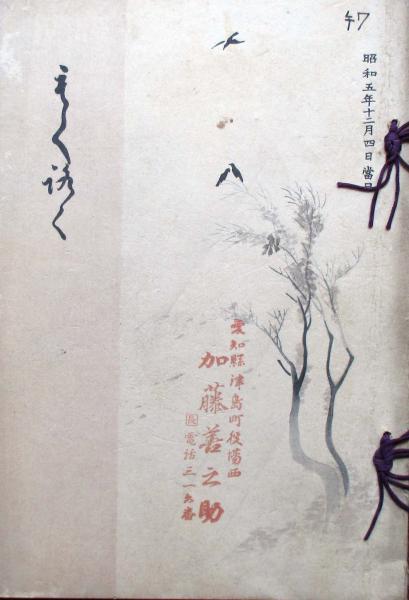 午7
昭和五年十二月四日當日
もくろく
愛知縣津島町役場西
加藤善之助
電話三一六番